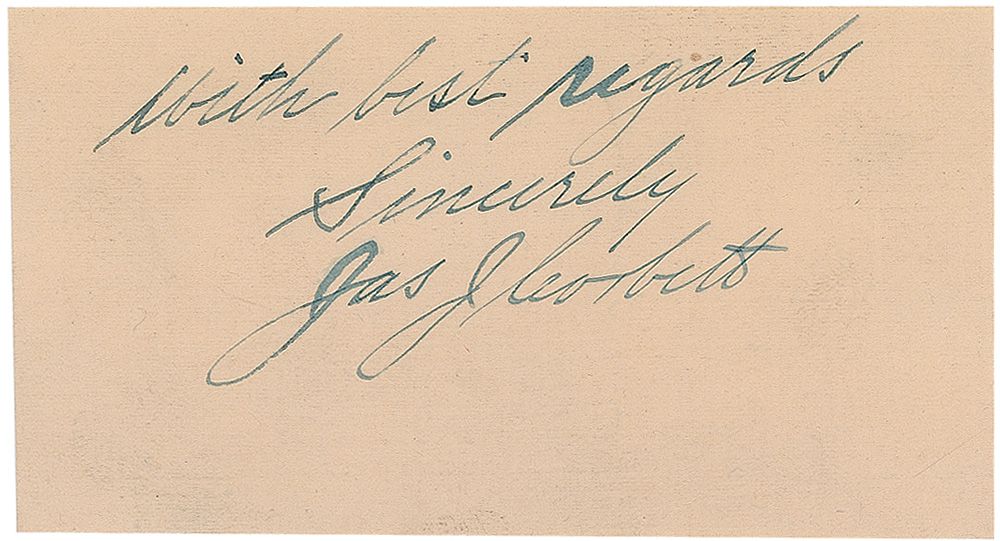 With best regards
Sincerely
Jas J Corbett